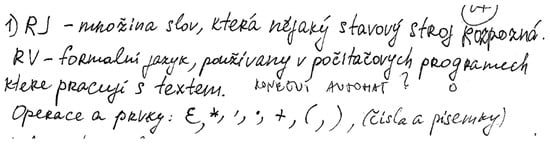 1) RJ - množina slov, která nějaký stavový stroj rozpozná.
RV - formalní jazyk, používany v počítačových programech
ktere pracují s textem. KONEČNÝ AUTOMAT ?
Operace a prvky: ε, *, ', ·, +, (, ), (čísla a písemky)